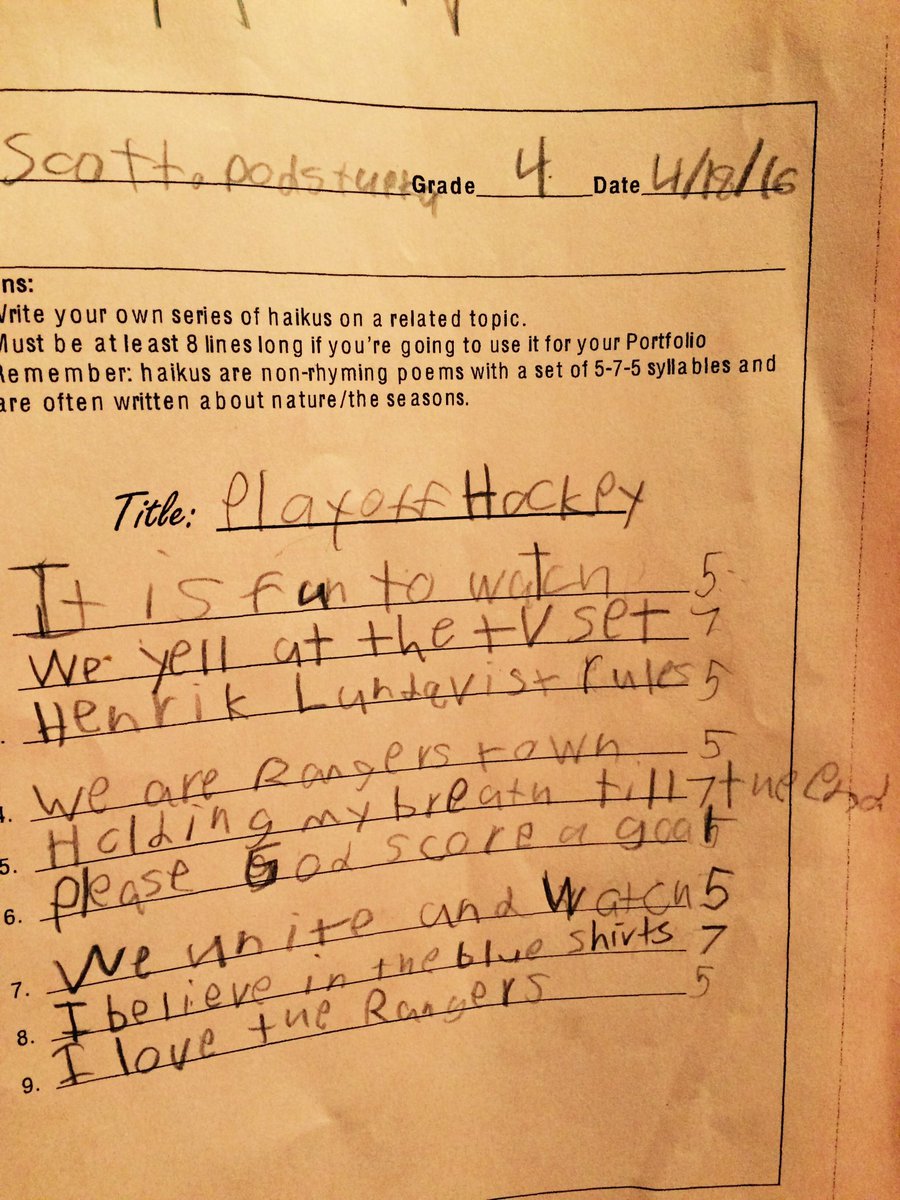 Scott. podsturny Grade 4 Date 4/18/16
ns:
Write your own series of haikus on a related topic.
Must be at least 8 lines long if you're going to use it for your Portfolio
Remember: haikus are non-rhyming poems with a set of 5-7-5 syllables and
are often written about nature/the seasons.
Title: Playoff Hockey
It is fun to watch 5
We yell at the tV set 7
. Henrik Lundqvist rules 5
4. We are Rangers town 5
5. Holding my breath till the end 7
6. please God score a goal 5
7. We unite and Watch 5
8. I believe in the blue shirts 7
9. I love the Rangers 5